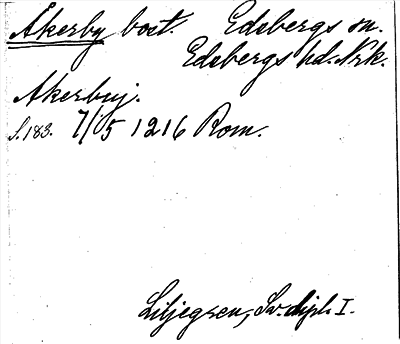 Åkerby bost. Edsbergs sn.
Edsbergs hd. Nrk.
Akerbuj.
s. 183. 7/5 1216 Rom.
Liljegren, Sv. dipl. I.